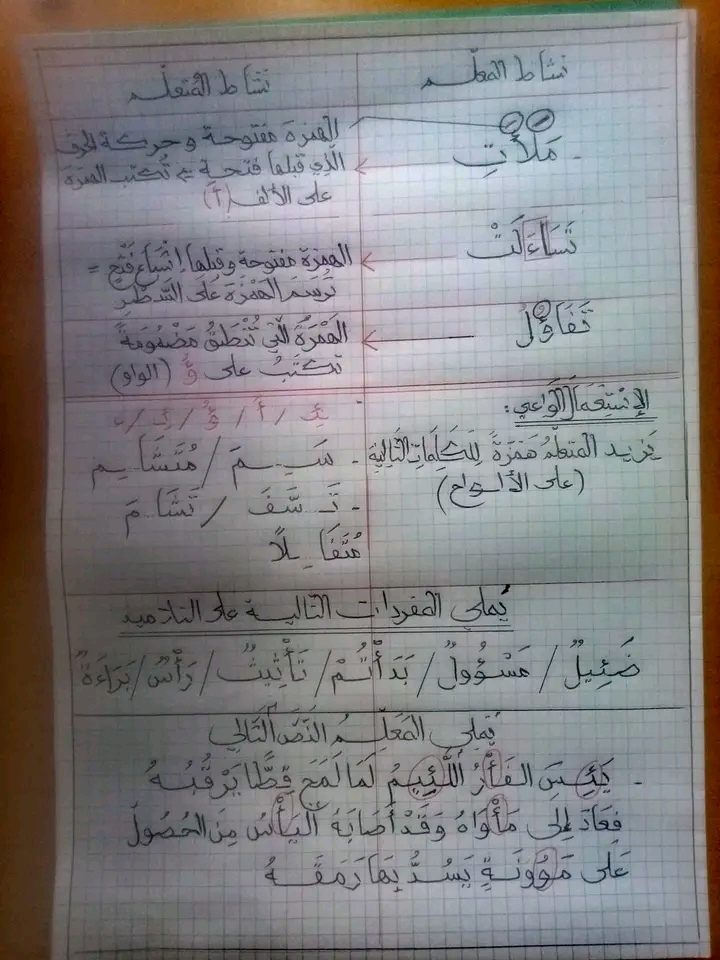 نشاط المعلّم
نشاط المتعلّم
- مَلَأَتِ
الهمزة مفتوحة وحركة الحرف
الذي قبلها فتحة => تُكتب الهمزة
على الألف (أ)
تَسَاءَلَتْ
الهمزة مفتوحة وقبلها إشباع فتح =
تُرسَم الهَمْزة عَلَى السّطرِ
تَفَاؤُلُ
الهَمْزَةُ الّتي تُنْطَقُ مَضْمُومَةً
تكتَبُ على ؤُ (الواو)
الإسْتِعْمَال الوَاعِي:
يَزيد المتعلّمُ هَمْزَةً لِلكَلِمَاتِ التَّالِيَةِ
(على الألواح)
ئِـ / أَ / ؤُ / ئـ / ء
- سَـ ـيـمَ / مُتَشَا ـيـم
- تَـ ـسَّفَ / تَشَا ـمَ
مُتَفَا ـلًا
يُملي المفردات التّالية على التلاميذ
ضَئِيلٌ / مَسْؤُولٌ / بَدَأْتُمْ / تَأْثِيثٌ / رَأْسٌ / بَرَاءَةٌ
يُملي المعَلِّمُ النَّصَّ التَّالي
- يَئِسَ الفَأْرُ اللَّئِيمُ لَمَا لَمَحَ قِطًّا يَرْقُبُهُ
فعَادَ إلى مَأْوَاهُ وَقَدْ أَصَابَهُ اليَأْسُ مِنَ الحُصُولِ
عَلَى مَؤُونَةٍ يَسُدُّ بِهَا رَمَقَهُ